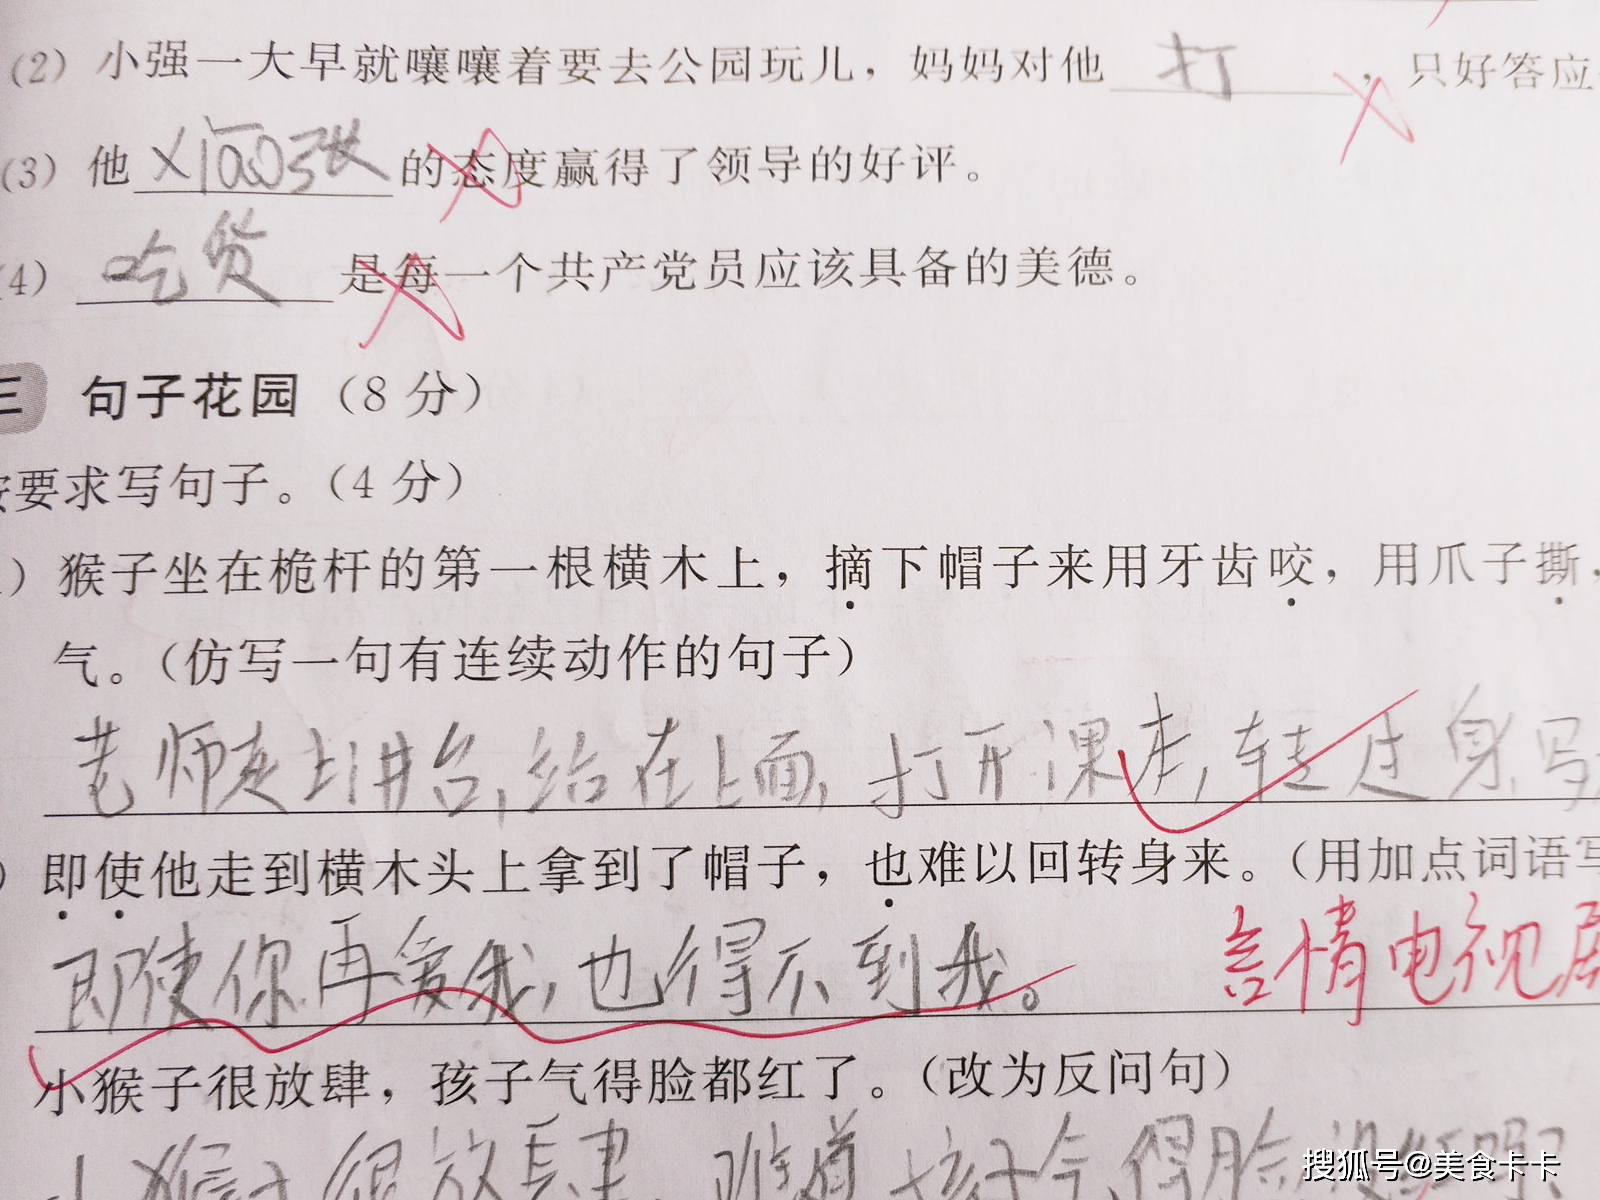 (2) 小强一大早就嚷嚷着要去公园玩儿，妈妈对他 打 ，只好答应
(3) 他 的态度赢得了领导的好评。
(4) 吃货 是每一个共产党员应该具备的美德。
三 句子花园（8 分）
按要求写句子。（4 分）
）猴子坐在桅杆的第一根横木上，摘下帽子来用牙齿咬，用爪子撕，
气。（仿写一句有连续动作的句子）
老师走上讲台，给在上面，打开课本，转过身，写
）即使他走到横木头上拿到了帽子，也难以回转身来。（用加点词语写
即使你再爱我，也得不到我。 言情电视剧
小猴子很放肆，孩子气得脸都红了。（改为反问句）
小猴子很放肆，难道孩子气得脸没红吗？
搜狐号@美食卡卡